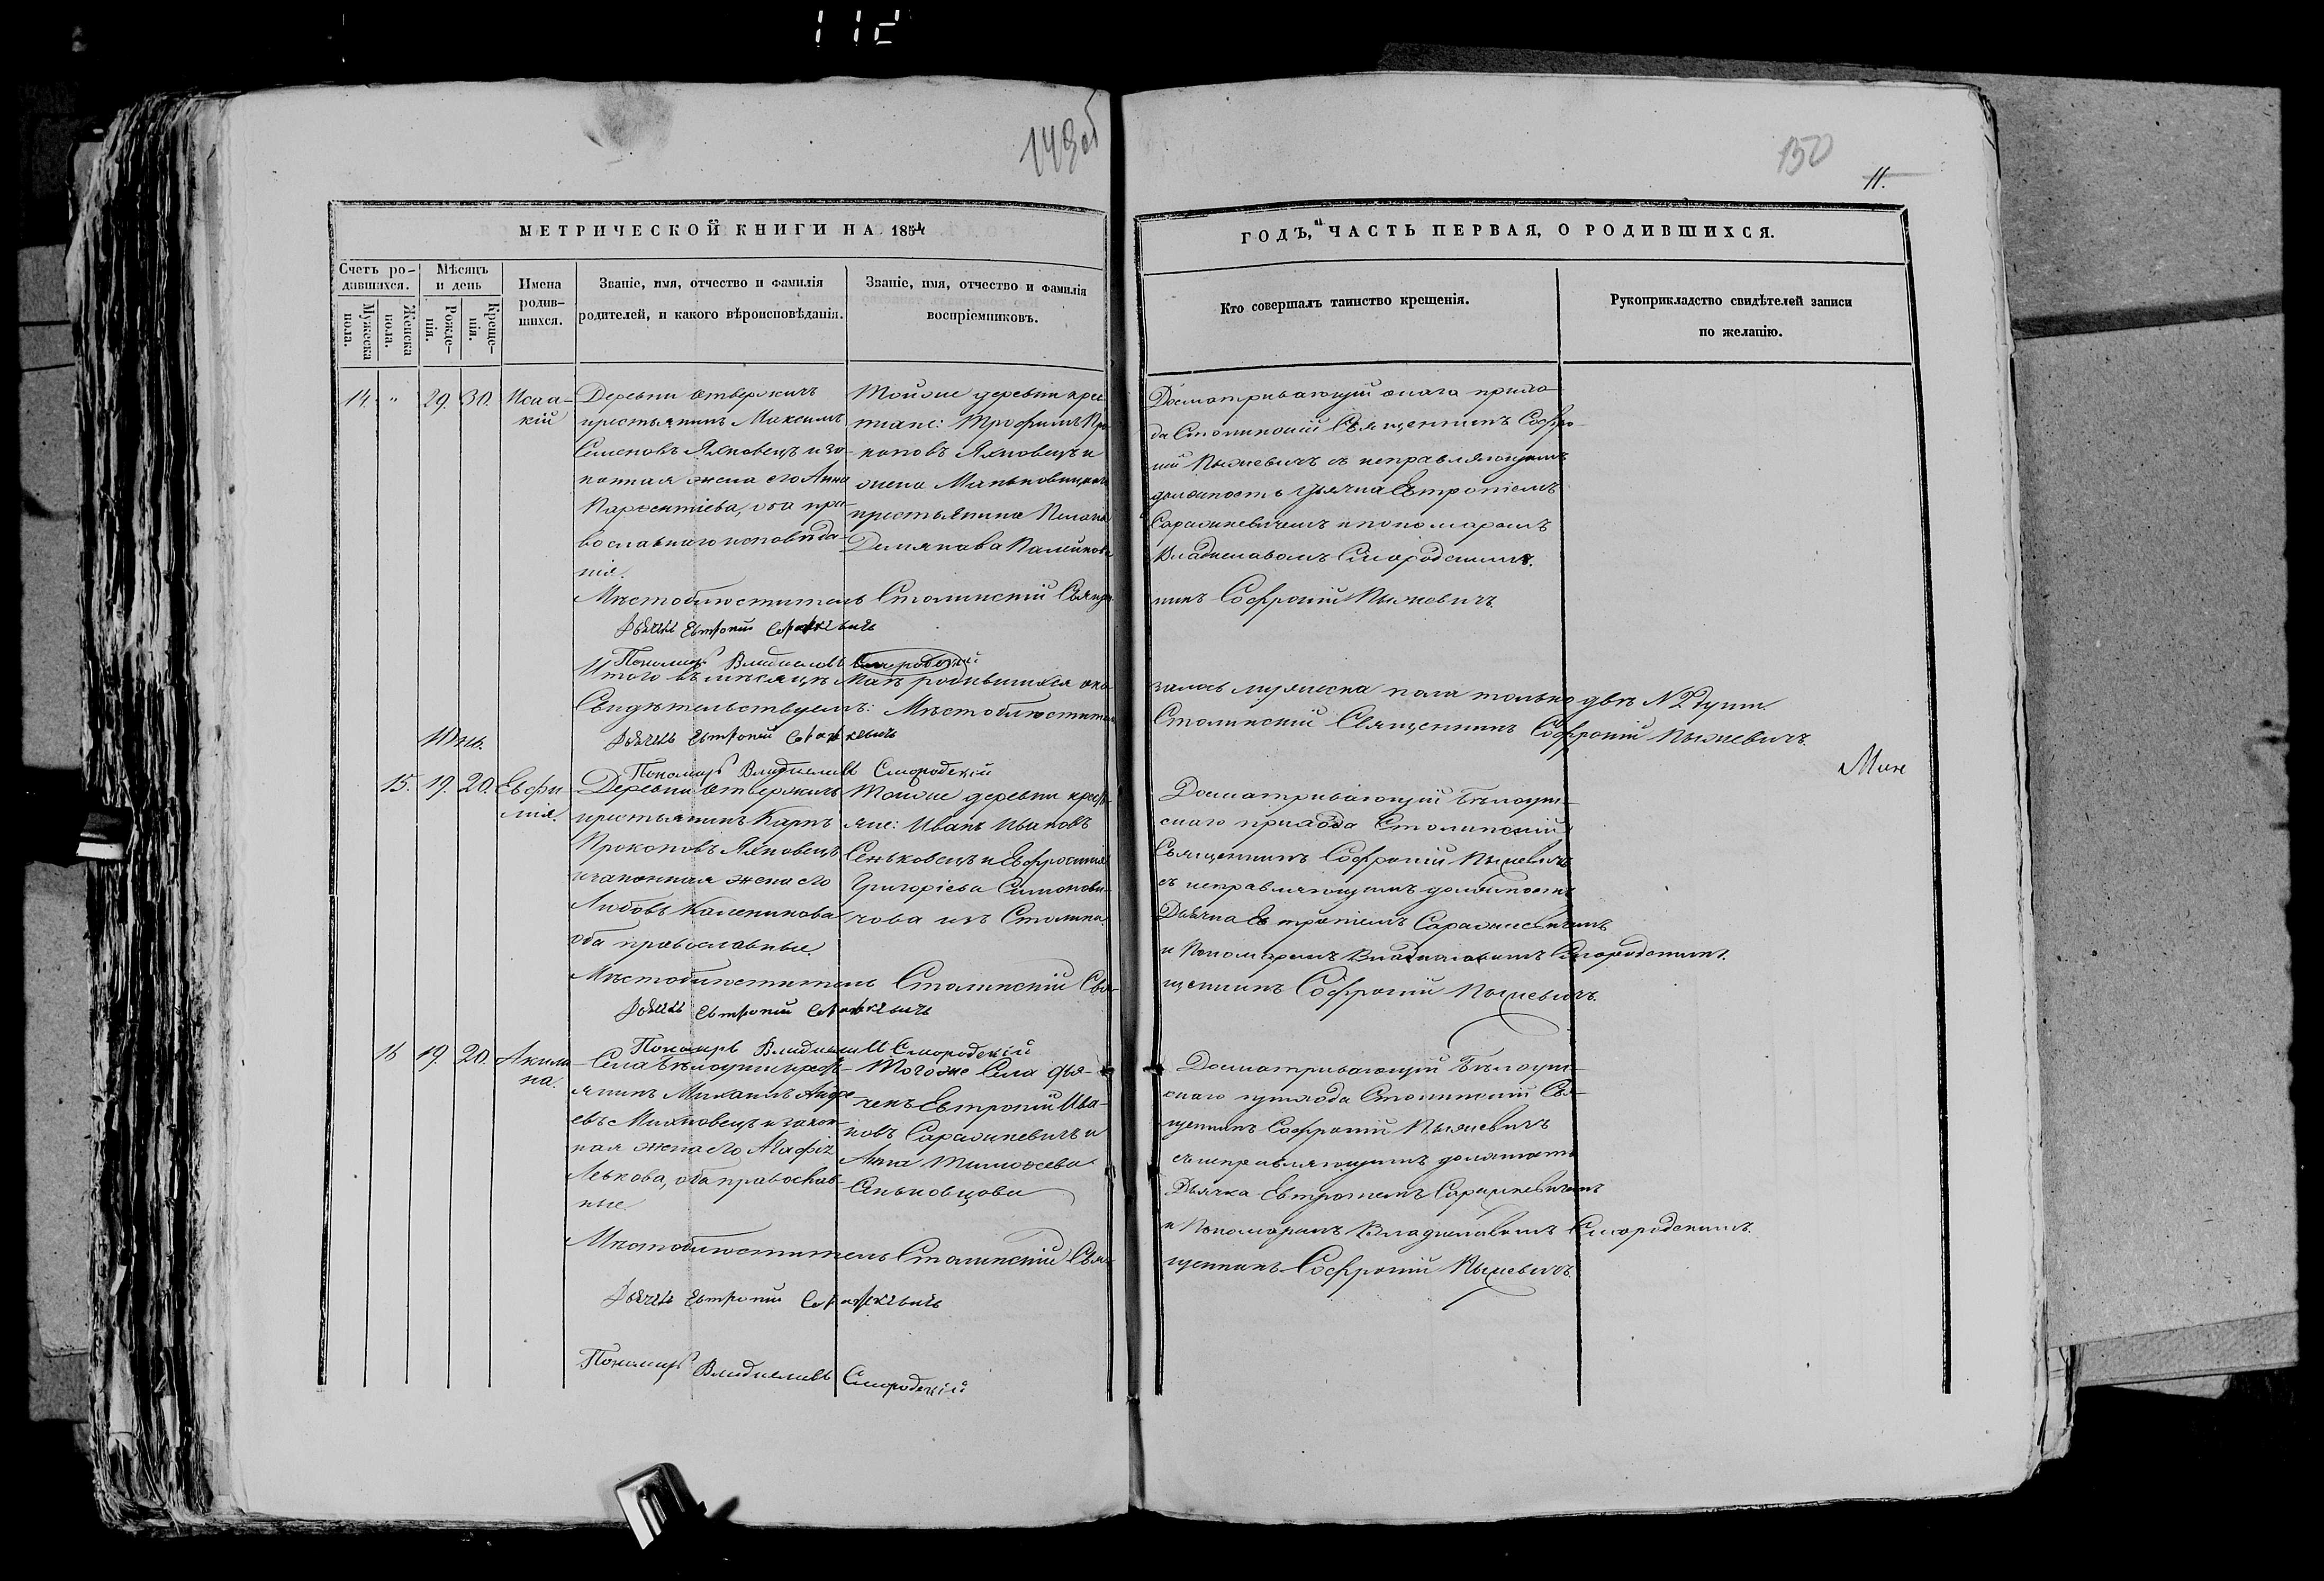 112
149об
150
11.
МЕТРИЧЕСКОЙ КНИГИ НА 1854
ГОДЪ, ЧАСТЬ ПЕРВАЯ, О РОДИВШИХСЯ.
Счетъ ро-
дившихся.
Мужеска
пола.
Женска
пола.
Мѣсяцъ
и день
Рожде-
нія.
Креще-
нія.
Имена
родив-
шихся.
Званіе, имя, отчество и фамилія
родителей, и какого вѣроисповѣданія.
Званіе, имя, отчество и фамилія
воспріемниковъ.
Кто совершалъ таинство крещенія.
Рукоприкладство свидѣтелей записи
по желанію.
14. " 29. 30. Исаа-
кій
Деревни Отвержичъ
крестьянинъ Максимъ
Семеновъ Яхновецъ и за-
конная жена его Анна
оба пра-
вославнаго исповѣда-
нія.
Тойже деревни крес
тьяне: Трофимъ Про
коповъ Яхновецъ и
жена Маньковицкаго
крестьянина
Досматривающій онаго прихо-
да Столинскій Священникъ Софро-
ній Пыжевичъ съ исправляющимъ
должность дьячка Евтропіемъ
Саражкевичемъ и пономаремъ
Владиславомъ Смородскимъ.
Мѣстоблюститель Столинскій Священ-
никъ Софроній Пыжевичъ
Дьячекъ Евтропій Саражкевичъ
Пономарь Владиславъ Смородскій
Итого въ мѣсяцѣ Маѣ родившихся ока
залось мужеска пола только двѣ № 2 души.
Свидѣтельствуемъ: Мѣстоблюститель
Столинскій Священникъ Софроній Пыжевичъ.
Дьячекъ Евтропій Саражкевичъ
Пономарь Владиславъ Смородскій
Июнь.
15. 19. 20. Евфи-
мія.
Деревни Отвержичъ
крестьянинъ Карпъ
Прокоповъ Яхновецъ
и законная жена его
Любовь Каленикова
оба православные.
Тойже деревни крестья
яне: Иванъ Ивановъ
Сеньковецъ и Евфросинія
Григоріева Симонови-
чова изъ Столина
Досматривающій Бѣлоуш-
скаго прихода Столинскій
Священникъ Софроній Пыжевичъ
съ исправляющимъ должность
Дьячка Евтропіемъ Саражкевичемъ
и Пономаремъ Владиславомъ Смородскимъ.
Мѣстоблюститель Столинскій Свя-
щенникъ Софроній Пыжевичъ.
Дьячекъ Евтропій Саражкевичъ
Пономарь Владиславъ Смородскій
16 19. 20. Акили
на.
Села Бѣлоуши крест-
янинъ Михаилъ Андре
евъ Михновецъ и закон
ная жена его Агафія
Левкова, оба православ-
ные.
Тогоже Села дья-
чекъ Евтропій Ива-
новъ Саражкевичъ и
Анна Тимофеева
Сеньковцова
Досматривающій Бѣлоуш-
скаго прихода Столинскій Свя-
щенникъ Софроній Пыжевичъ
съ исправляющимъ должность
Дьячка Евтропіемъ Саражкевичемъ
и Пономаремъ Владиславомъ Смородскимъ.
Мѣстоблюститель Столинскій Свя-
щенникъ Софроній Пыжевичъ.
Дьячекъ Евтропій Саражкевичъ
Пономарь Владиславъ Смородскій